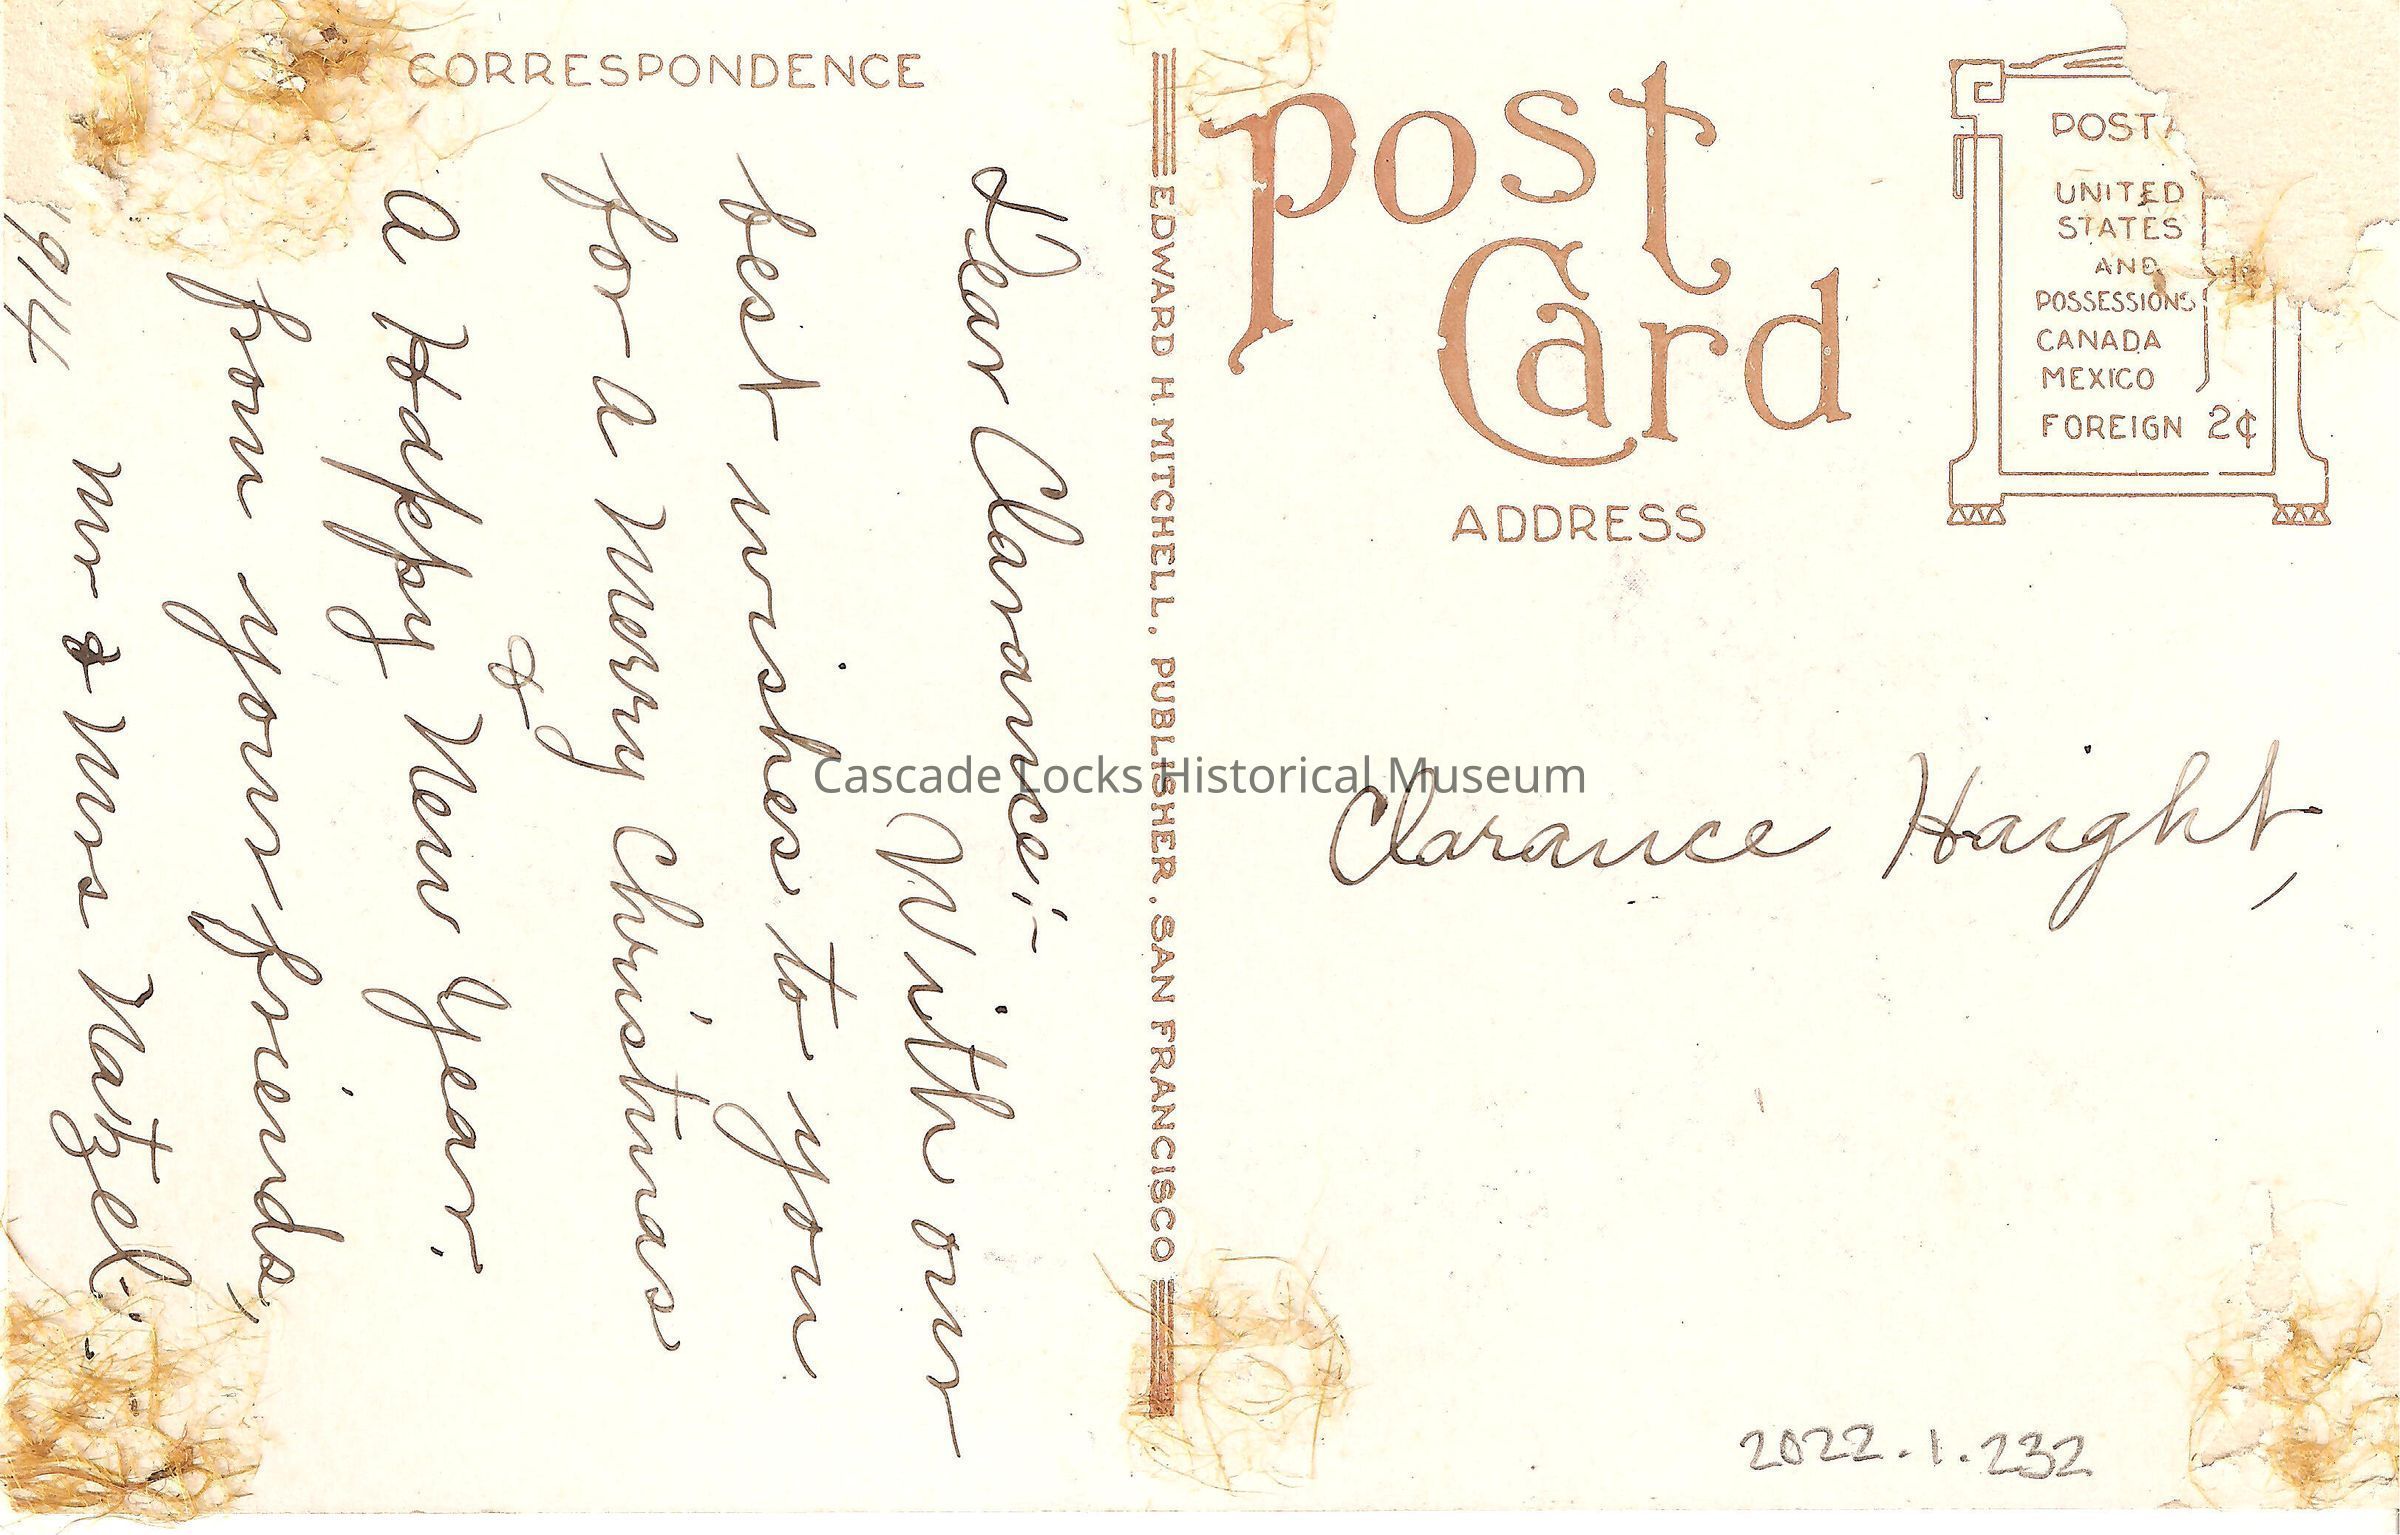 CORRESPONDENCE
Dear Clarance:-
With our
best wishes to you
for a Merry Christmas
&
A Happy New Year.
from your friends,
Mr & Mrs Natzel:
1914
EDWARD H. MITCHELL, PUBLISHER, SAN FRANCISCO
Post
Card
ADDRESS
POSTA
UNITED
STATES
AND
POSSESSIONS
CANADA
MEXICO
FOREIGN 2¢
Clarance Haight,
Cascade Locks Historical Museum
2022.1.232